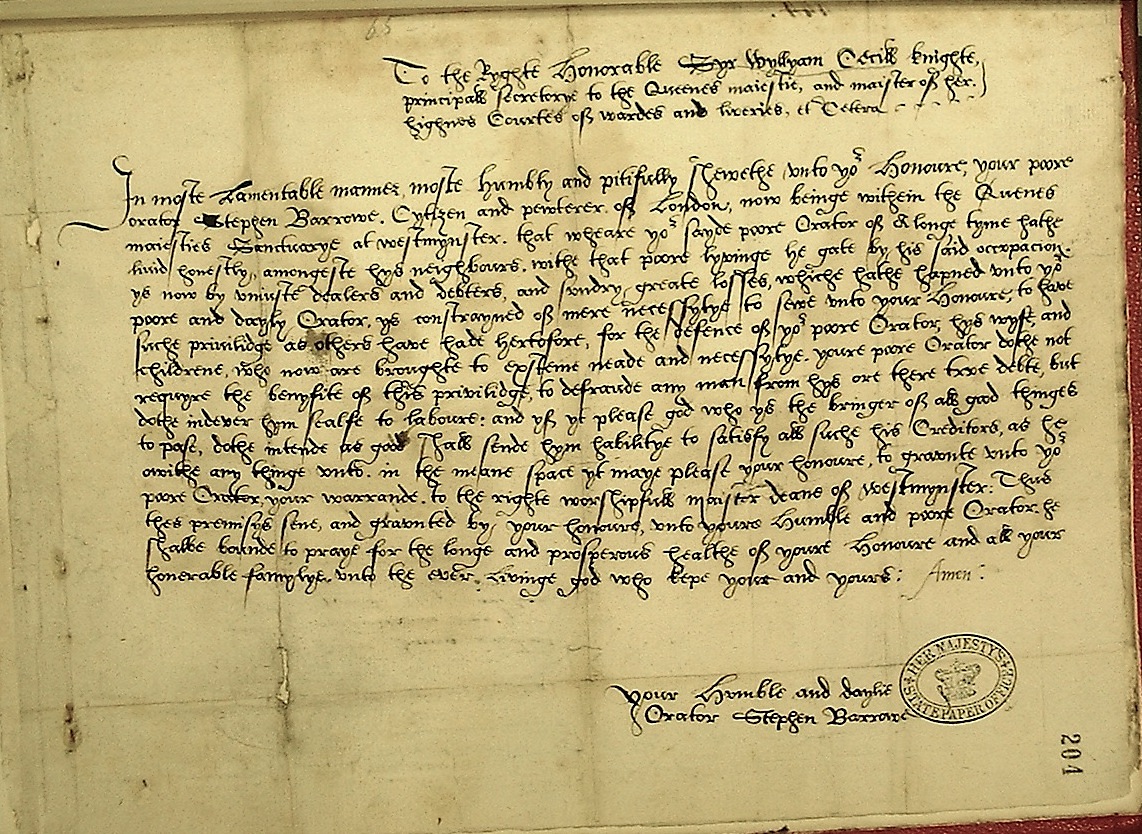 65
To the Ryghte Honorable Syr Wyllyam Cecill knighte,
principall secretorye to the Queenes maiestie, and maister off her
highnes Courtes off wardes and liveries, et Cetera
In moste Lamentable manner, moste humbly and pitifully shewethe vnto yor Honoure, your poore
orator Stephen Barrowe, Cytizen and pewterer off London, now beinge withein the Quenes
maiesties Sanctuarye at westmynster. that wheare yor sayde poore Orator off a longe tyme hathe
livid honestly, amongeste hys neighbours, withe that poore lyvinge he gate by his said occopacion.
ys now by vniuste dealers and debters, and sundry greate losses, whiche hathe hapned vnto yor
poore and dayly Orator, ys constrayned off mere necessytye to sewe vnto your Honoure, to have
suche priviledge as others have hade hertofore, for the defence off yor poore Orator, hys wyfe, and
childrene, who now are broughte to exsteme neade and necessytye. youre poore Orator dothe not
requyre the benyfite off this priviledge, to defraude any man from hys ore there trwe debte, but
dothe indever hym sealfe to laboure: and yff yt please god who ys the bringer off all good thinges
to pase, dothe intende as god shall sende hym habilitye to satisfy all suche his Creditors, as he
owithe any thinge vnto. in the meane space yt maye please your honoure, to gravnte vnto yor
poore Orator, your warrande. to the righte worshipfull maister deane off westmynster. Thus
thes premisys sene, and gravnted by your honoure, vnto youre Humble and poore Orator. he
shalbe bounde to praye for the longe and prosperous healthe off youre Honoure and all your
honerable famylye. vnto the ever. Livinge god who kepe your and yours: Amen:
your Humble and daylie
Orator Stephen Barrowe
HER MAJESTY'S STATE PAPER OFFICE
201